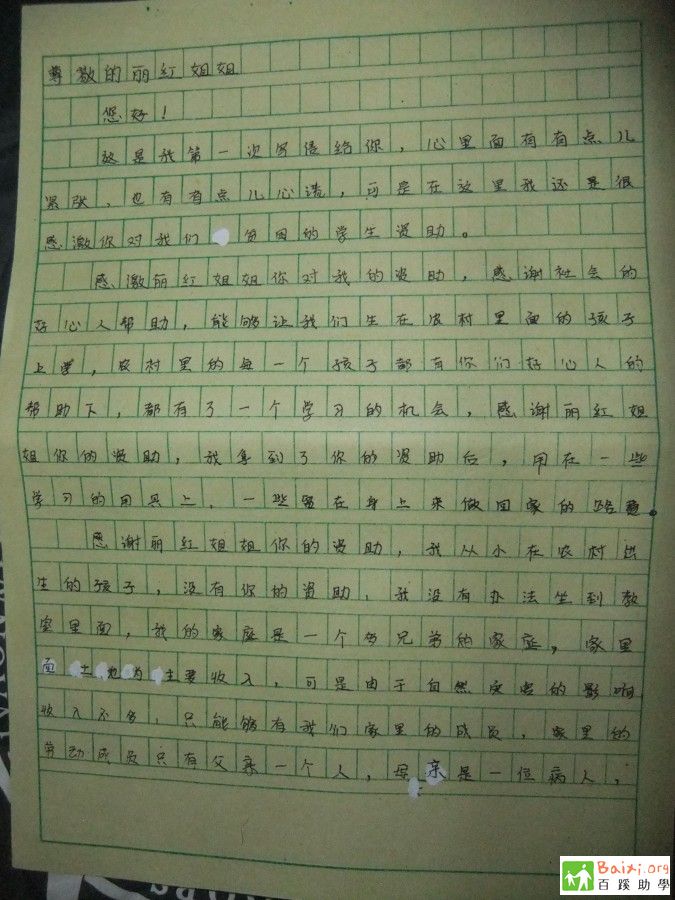 尊敬的丽红姐姐
您好！
这是我第一次写信给你，心里面有有点儿
紧张，也有有点儿心慌，可是在这里我还是很
感激你对我们贫困的学生资助。
感激丽红姐姐你对我的资助，感谢社会的
好心人帮助，能够让我们生在农村里面的孩子
上学，农村里的每一个孩子都有你们好心人的
帮助下，都有了一个学习的机会，感谢丽红姐
姐你的资助，我拿到了你的资助后，用在一些
学习的用具上，一些留在身上来做回家的路费。
感谢丽红姐姐你的资助，我从小在农村出
生的孩子，没有你的资助，我没有办法坐到教
室里面，我的家庭是一个多兄弟的家庭，家里
面土地为主要收入，可是由于自然灾害的影响
收入不多，只能够有我们家里的成员，家里的
劳动成员只有父亲一个人，母亲是一位病人，
Baixi.org
百蹊助學